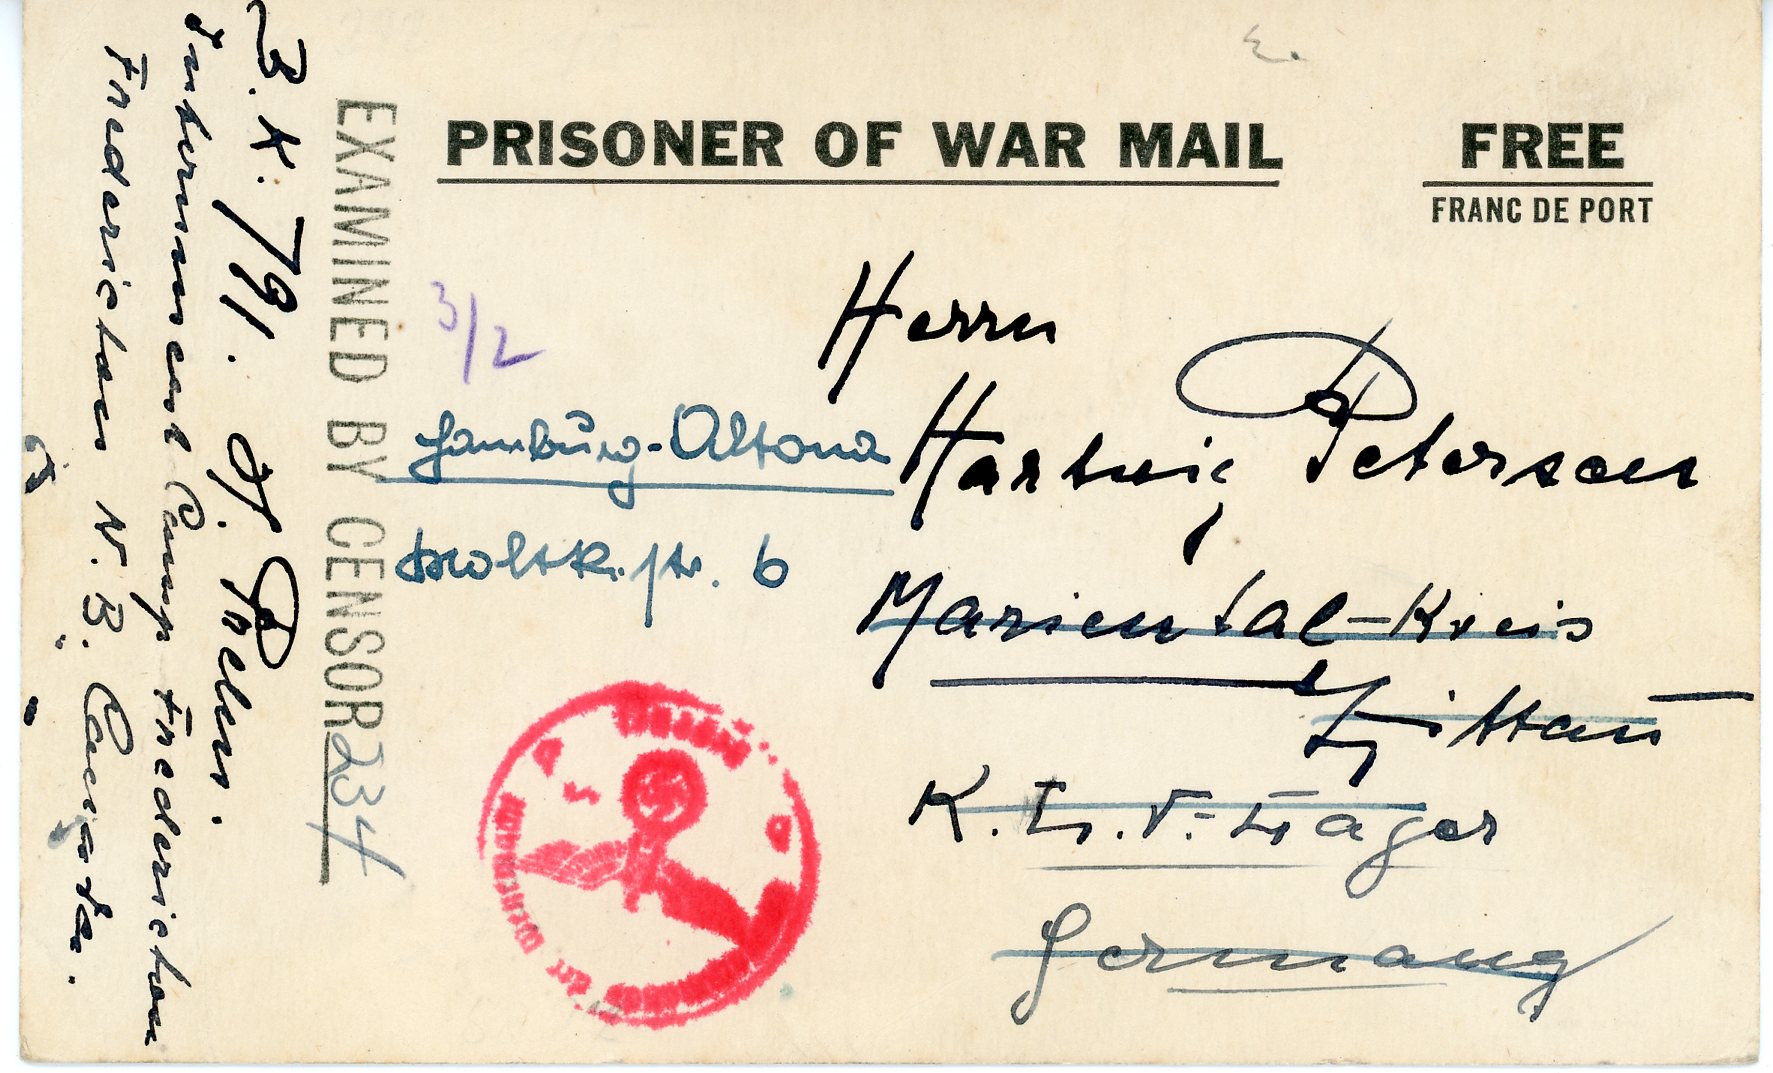 PRISONER OF WAR MAIL
FREE
FRANC DE PORT
EXAMINED BY CENSOR 234
3/2
Herrn
Hartwig Petersen
Mariental-Kreis
Zittau
K.L.V.-Lager
Germany
Hamburg-Altona
Moltkestr. 6
B.K. 791. H.
Internment Camp Fredericton
Fredericton N.B. Canada.